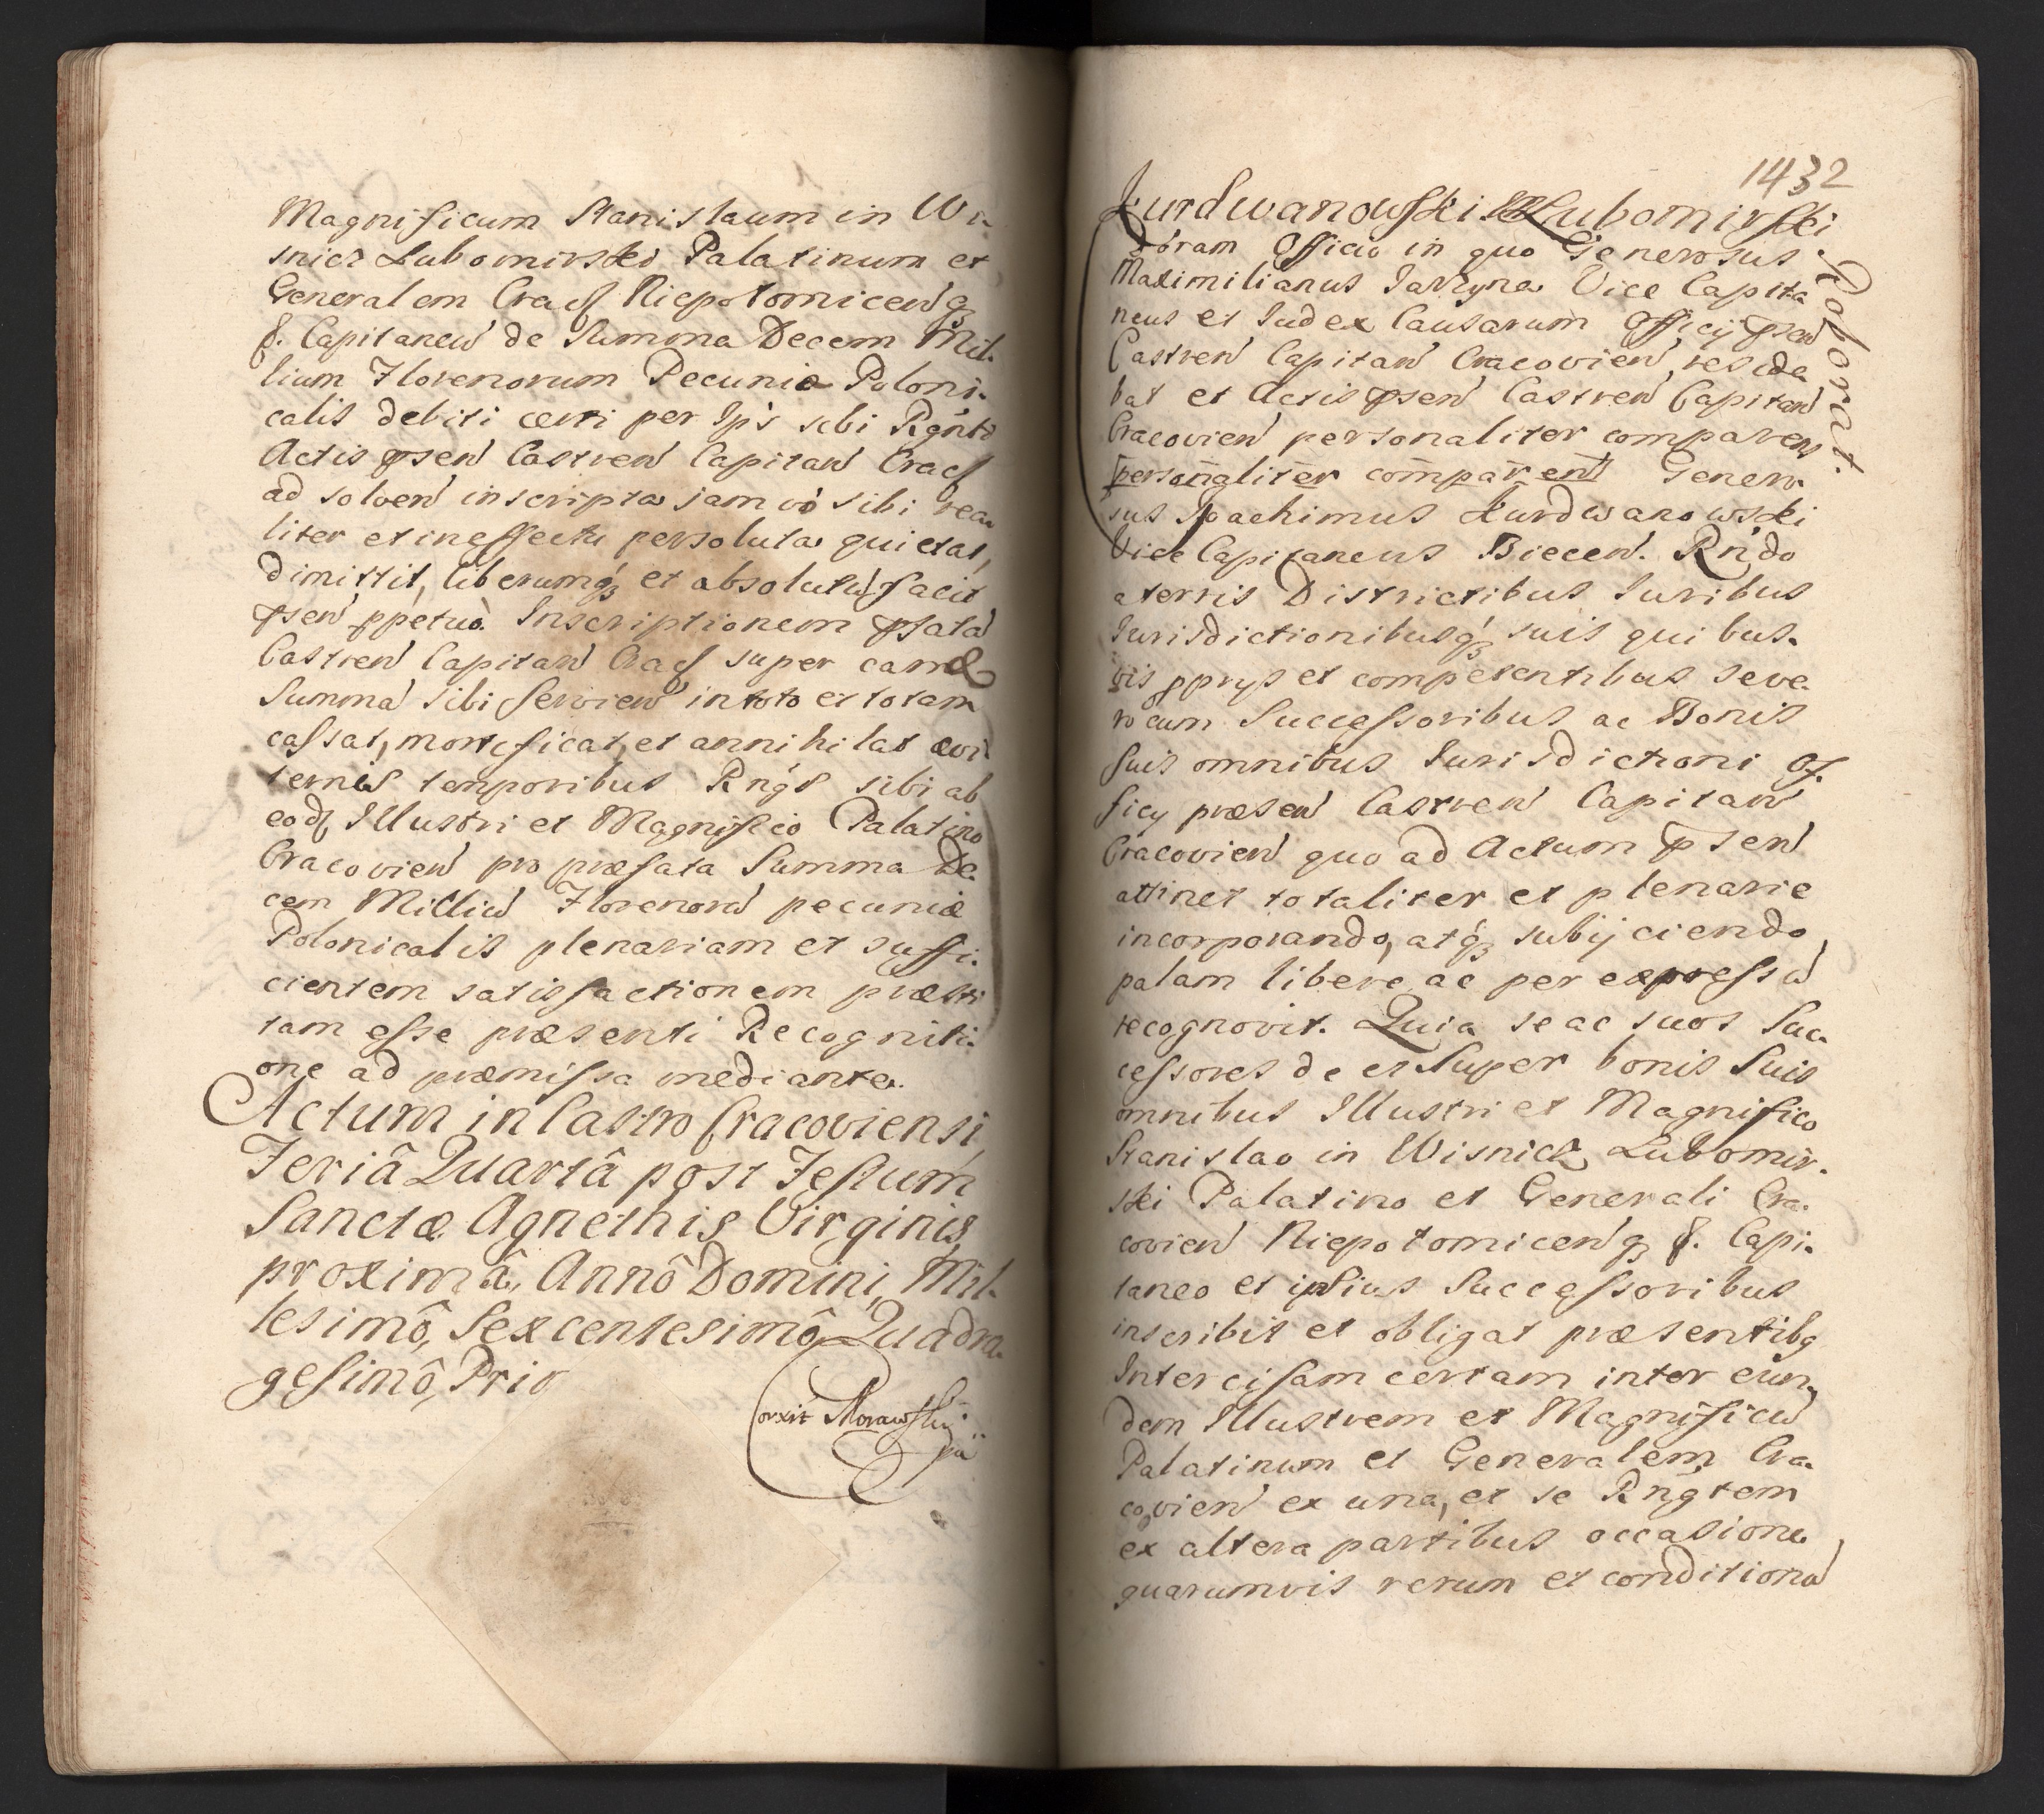 Magnificum Stanislaum in Wi-
snicz Lubomirski Palatinum et
Generalem Crac Niepolomicenq
&. Capitaneu de Summa Decem Mil-
lium Florenorum Pecuniæ Poloni-
calis debiti certi per Ips sibi Rgnti
Actis psen Castren Capitan Crac
ad solven inscripta jam vo sibi rea
liter et in effectu persoluta quietat,
dimittit, liberumq et absolutu facit
psen ppetuo. Inscriptionem psata
Castren Capitan Crac super eam
Summa sibi servien in toto et totam
cassat, mortificat, et annihilat ævi-
ternis temporibus Rngs sibi ab
eod Illustri et Magnifico Palatino
Cracovien pro præfata Summa De-
cem Milliu Florenoru pecuniæ
Polonicalis plenariam et suffi-
cientem satisfactionem præsti
tam esse præsenti Recogniti-
one ad præmissa mediante.
Actum in Castro Cracoviensi
Feriâ Quartâ post Festum
Sanctæ Agnethis Virginis
proximâ, Annô Domini, Mil-
lesimô, Sexcentesimô Quadra-
gesimô, Prio
Corxit Morawski
pa
1432
Kurdwanowski Lubomirski
Roborat.
Coram Officio in quo Generosus
Maximilianus Jarzyna Vice Capita
neus et Iudex Causarum Officij psen
Castren Capitan Cracovien reside
bat et Actis psen Castren Capitan
Cracovien personaliter comparens
personaliter comparent Genero
sus Joachimus Kurdwanowski
Vice Capitaneus Biecen. Rndo
a terris Districtibus Iuribus
Iurisdictionibusq suis quibus-
vis pprys et competentibus seve-
ro cum Successoribus ac Bonis
suis omnibus Iurisdictioni Of-
ficy præsen Castren Capitan
Cracovien quo ad Actum psen
attinet totaliter et plenarie
incorporando, atq subijciendo
palam libere ac per expressu
recognovit. Quia se ac suos Suc-
cessores de et super bonis suis
omnibus Illustri et Magnifico
Stanislao in Wisnicz Lubomir-
ski Palatino et Generali Cra-
covien Niepotomicenq &. Capi-
taneo et ipsius Successoribus
inscribit et obligat præsentibq
Intercisam certam inter eun-
dem Illustrem et Magnificu
Palatinum et Generalem Cra-
covien ex una, et se Rngtem
ex altera partibus occasione
quarumvis rerum et conditionu